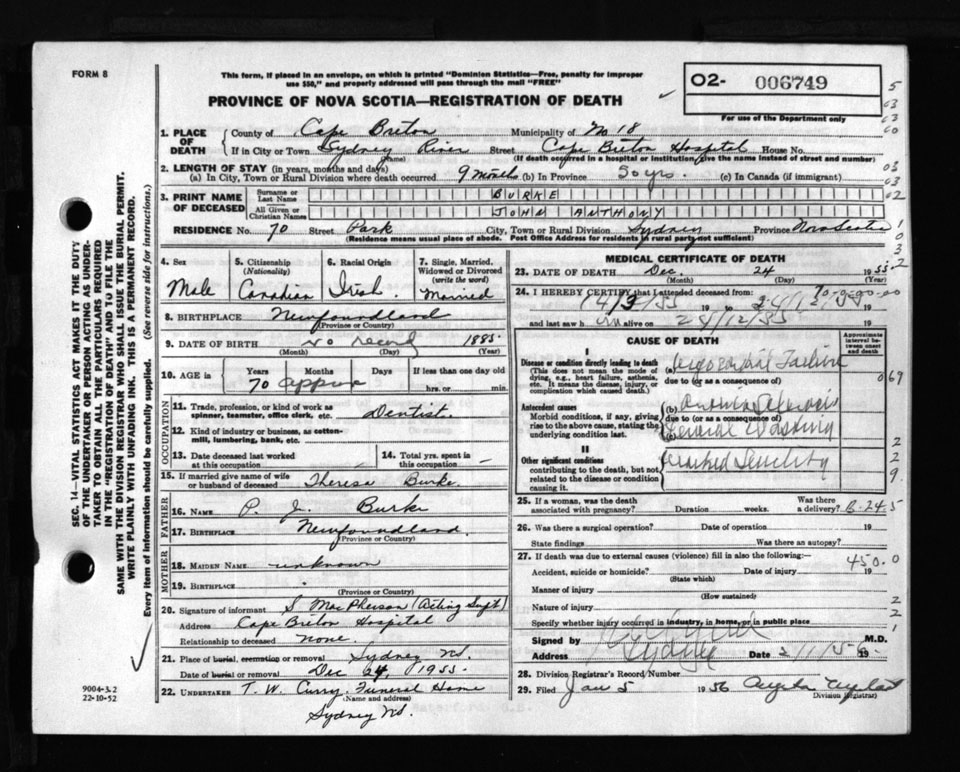 FORM 8
This form, if placed in an envelope, on which is printed "Dominion Statistics—Free, penalty for improper
use $50," and properly addressed will pass through the mail "FREE"
PROVINCE OF NOVA SCOTIA—REGISTRATION OF DEATH
O2- 006749
For use of the Department only
1. PLACE OF DEATH
County of Cape Breton Municipality of No 18
If in City or Town Sydney River Street Cape Breton Hospital House No.
(Name) (If death occurred in a hospital or institution, give the name instead of street and number)
2. LENGTH OF STAY (in years, months and days)
(a) In City, Town or Rural Division where death occurred 9 Months (b) In Province 50 yrs. (c) In Canada (if immigrant)
3. PRINT NAME OF DECEASED
Surname or Last Name BURKE
All Given or Christian Names JOHN ANTHONY
RESIDENCE No. 70 Street Park City, Town or Rural Division Sydney Province Nova Scotia
(Residence means usual place of abode. Post Office Address for residents in rural parts not sufficient)
4. Sex Male
5. Citizenship (Nationality) Canadian
6. Racial Origin Irish
7. Single, Married, Widowed or Divorced (write the word) Married
8. BIRTHPLACE Newfoundland
(Province or Country)
9. DATE OF BIRTH no record 1885
(Month) (Day) (Year)
10. AGE in Years Months Days If less than one day old
70 approx hrs. or min.
OCCUPATION
11. Trade, profession, or kind of work as spinner, teamster, office clerk, etc. Dentist.
12. Kind of industry or business, as cotton-mill, lumbering, bank, etc.
13. Date deceased last worked at this occupation
14. Total yrs. spent in this occupation
15. If married give name of wife or husband of deceased Theresa Burke.
FATHER
16. NAME P. J. Burke
17. BIRTHPLACE Newfoundland
(Province or Country)
MOTHER
18. MAIDEN NAME unknown
19. BIRTHPLACE
(Province or Country)
20. Signature of informant S MacPherson (Acting Supt)
Address Cape Breton Hospital
Relationship to deceased None.
21. Place of burial, cremation or removal Sydney NS.
Date of burial or removal Dec 24, 1955.
22. UNDERTAKER T. W. Curry, Funeral Home
(Name and address)
Sydney NS.
MEDICAL CERTIFICATE OF DEATH
23. DATE OF DEATH Dec. 24 1955
24. I HEREBY CERTIFY that I attended deceased from:
14/3/55 19
and last saw h im alive on 24/12/55
CAUSE OF DEATH
Approximate interval between onset and death
I
Disease or condition directly leading to death
(This does not mean the mode of dying, e.g., heart failure, asthenia, etc. It means the disease, injury, or complication which caused death.)
(a)
due to (or as a consequence of)
Antecedent causes
Morbid conditions, if any, giving rise to the above cause, stating the underlying condition last.
(b)
due to (or as a consequence of)
General Wasting
II
Other significant conditions
contributing to the death, but not related to the disease or condition causing it.
Marked Senility
25. If a woman, was the death associated with pregnancy? Duration weeks. Was there a delivery?
26. Was there a surgical operation? Date of operation 19
State findings Was there an autopsy?
27. If death was due to external causes (violence) fill in also the following:—
Accident, suicide or homicide? Date of injury 19
(State which)
Manner of injury
(How sustained)
Nature of injury
Specify whether injury occurred in industry, in home, or in public place
Signed by M.D.
Address Sydney Date 2/1/56 19
28. Division Registrar's Record Number
29. Filed Jan 5 1956
(Division Registrar)
SEC. 14—VITAL STATISTICS ACT MAKES IT THE DUTY
OF THE UNDERTAKER OR PERSON ACTING AS UNDER-
TAKER TO OBTAIN ALL THE PARTICULARS REQUIRED
IN THE "REGISTRATION OF DEATH" AND TO FILE THE
SAME WITH THE DIVISION REGISTRAR WHO SHALL ISSUE THE BURIAL PERMIT.
WRITE PLAINLY WITH UNFADING INK. THIS IS A PERMANENT RECORD.
Every item of information should be carefully supplied. (See reverse side for instructions.)
9004-3.2
22-10-52